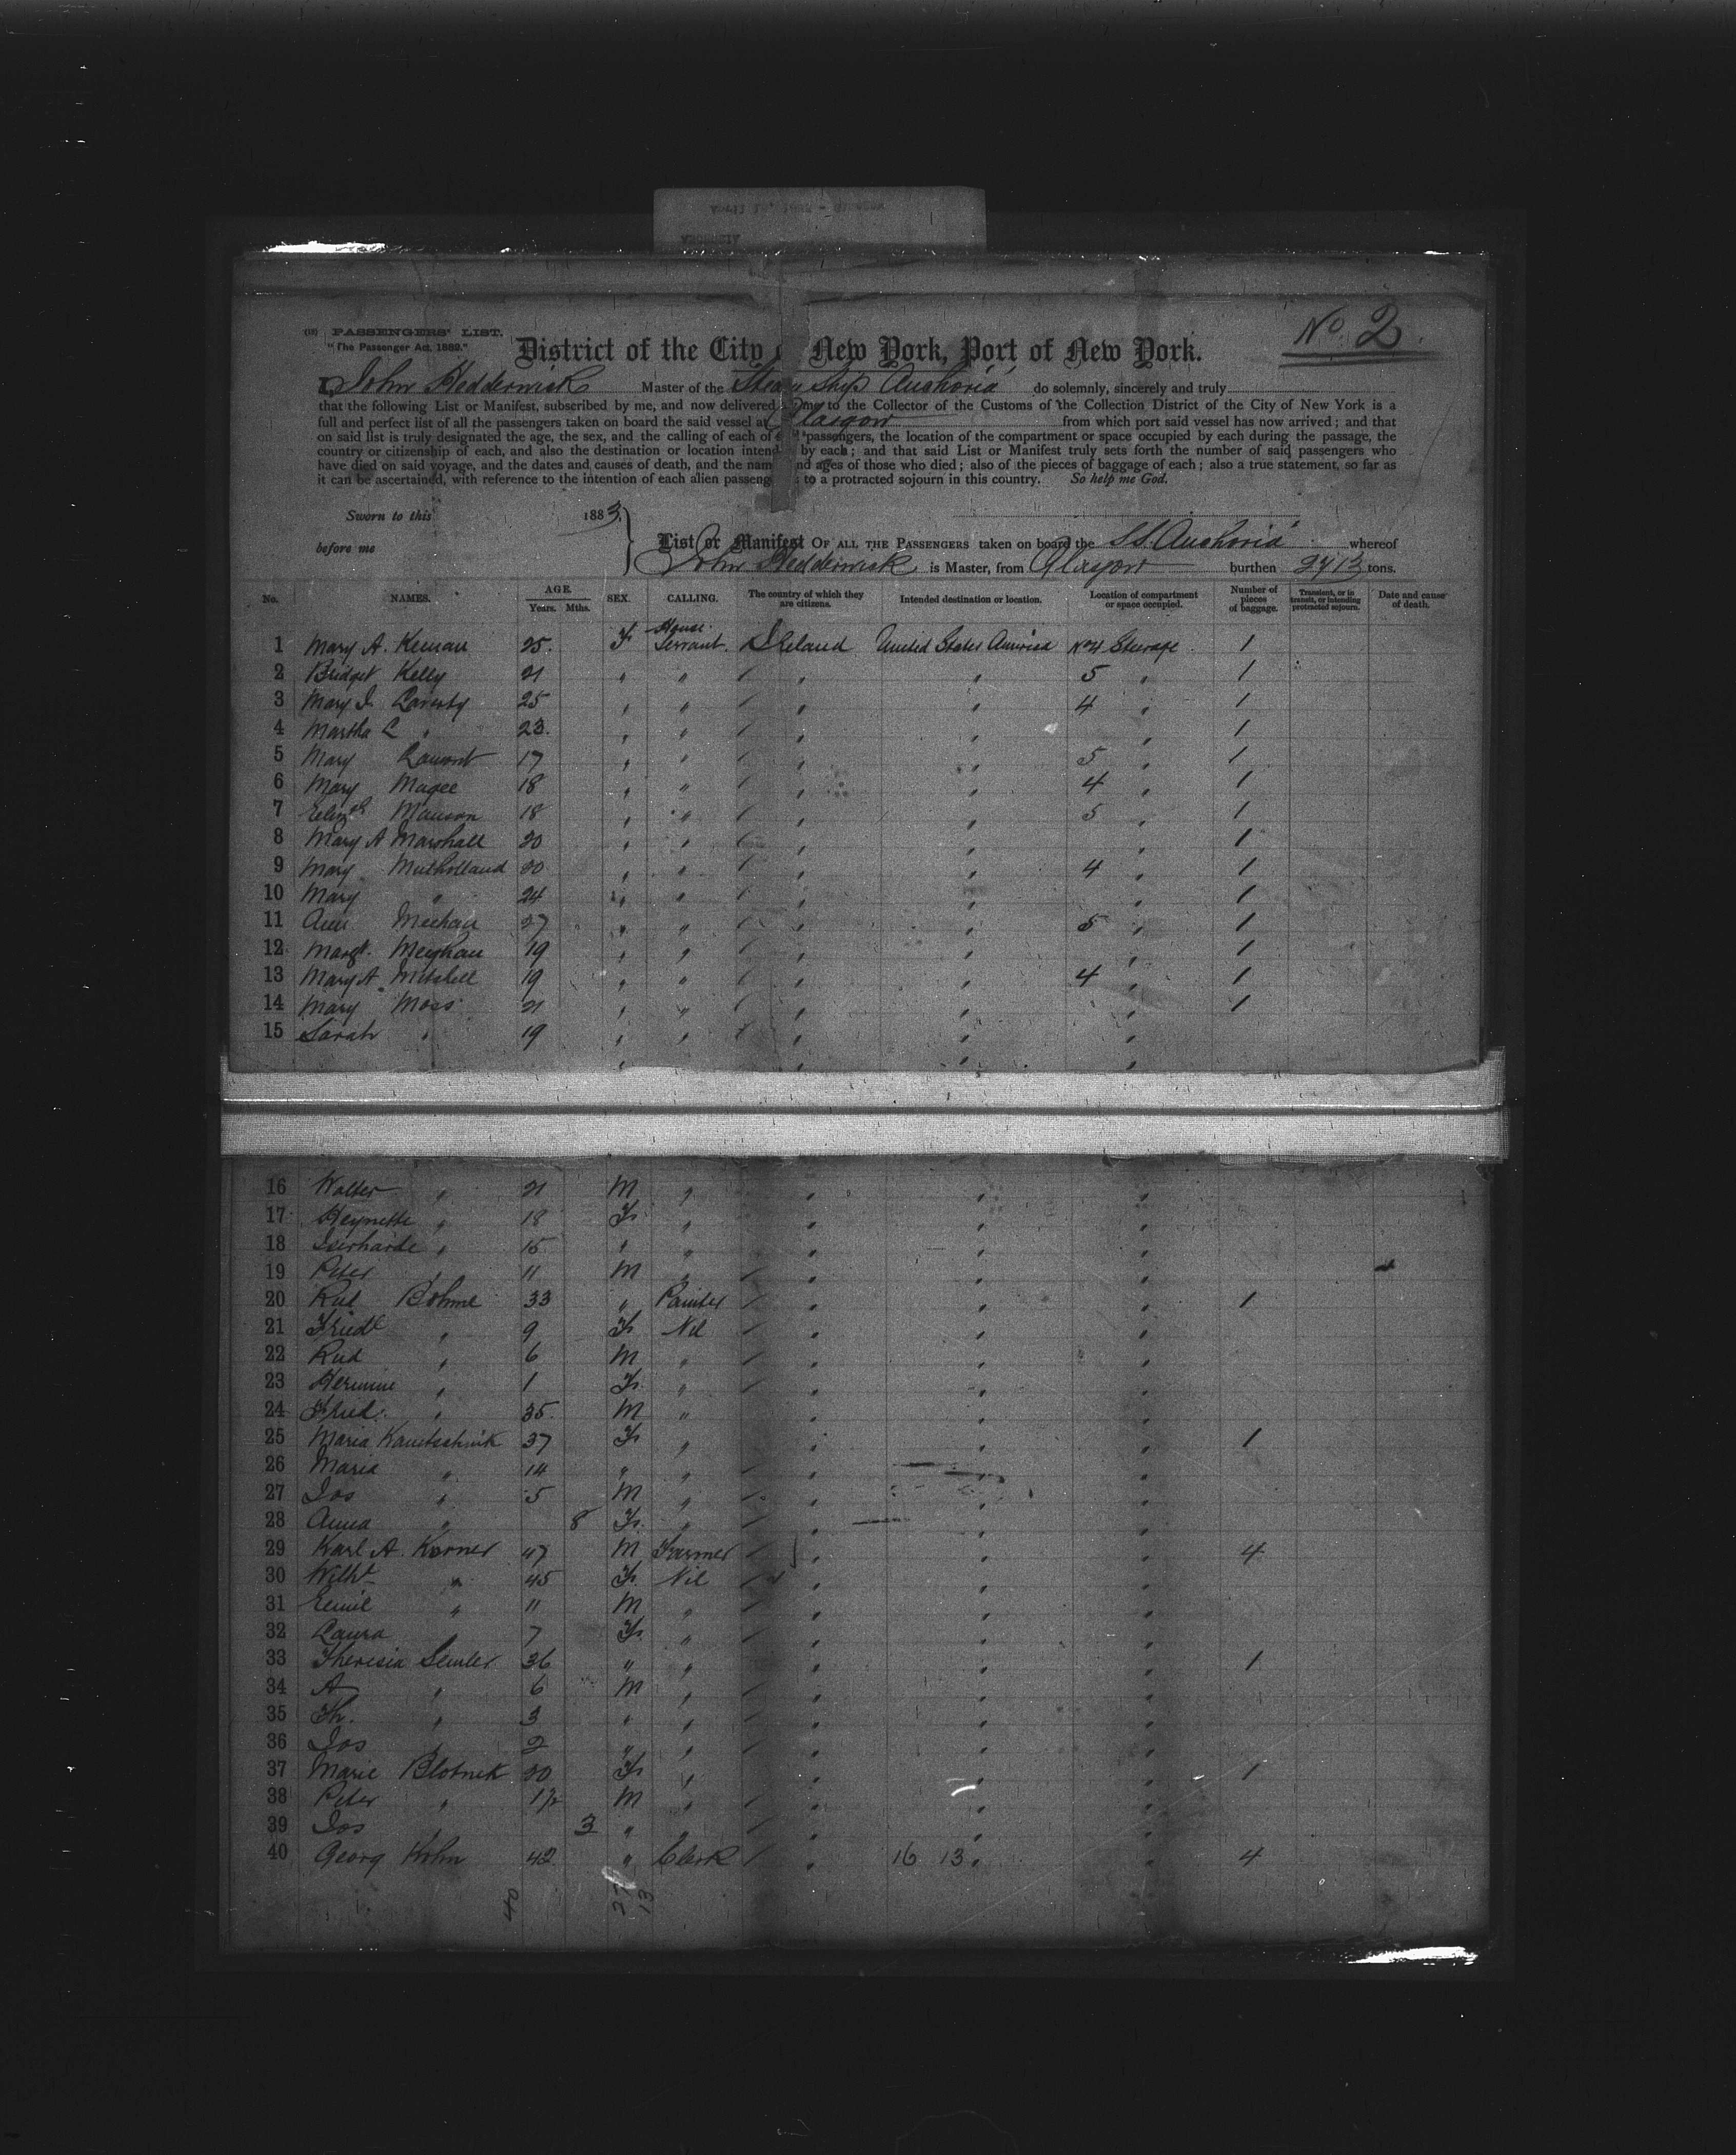 No. 2
(13) PASSENGERS' LIST.
"The Passenger Act, 1882."
District of the City New York, Port of New York.
I, John Hedderwick Master of the Steam Ship Anchoria do solemnly, sincerely and truly
that the following List or Manifest, subscribed by me, and now delivered me to the Collector of the Customs of the Collection District of the City of New York is a
full and perfect list of all the passengers taken on board the said vessel at Glasgow from which port said vessel has now arrived; and that
on said list is truly designated the age, the sex, and the calling of each of passengers, the location of the compartment or space occupied by each during the passage, the
country or citizenship of each, and also the destination or location intend by each; and that said List or Manifest truly sets forth the number of said passengers who
have died on said voyage, and the dates and causes of death, and the nam nd ages of those who died; also of the pieces of baggage of each; also a true statement, so far as
it can be ascertained, with reference to the intention of each alien passeng to a protracted sojourn in this country. So help me God.
Sworn to this 1883
before me
List or Manifest OF ALL THE PASSENGERS taken on board the S.S. Anchoria whereof
John Hedderwick is Master, from Glasgow burthen 2713 tons.
No. NAMES. AGE. Years. Mths. SEX. CALLING. The country of which they are citizens. Intended destination or location. Location of compartment or space occupied. Number of pieces of baggage. Transient, or in transit, or intending protracted sojourn. Date and cause of death.
1 Mary A. Keenan 25 F House Servant Ireland United States America No 4 Steerage 1
2 Bridget Kelly 21 " " " " 5 " 1
3 Mary J. Laverty 25 " " " " 4 " 1
4 Martha L " 23 " " " " " 1
5 Mary Lamont 17 " " " " 5 " 1
6 Mary Magee 18 " " " " 4 " 1
7 Elizth Manson 18 " " " " 5 " 1
8 Mary A Marshall 20 " " " " " 1
9 Mary Mulholland 20 " " " " 4 " 1
10 Mary " 24 " " " " " 1
11 Ann Meehan 27 " " " " 5 " 1
12 Margt. Meighan 19 " " " " " 1
13 Mary A. Mitchell 19 " " " " 4 " 1
14 Mary Moss 21 " " " " " 1
15 Sarah " 19 " " " " "
16 Walter " 21 M " " " "
17 Heynette " 18 F " " " "
18 Gerharde " 15 " " " " "
19 Peter " 11 M " " " "
20 Rud Bohme 33 " Painter " " " 1
21 Friedl " 9 F Nil " " "
22 Rud " 6 M " " " "
23 Hermine " 1 F " " " "
24 Fried. " 35 M " " " "
25 Maria Kautschink 37 F " " " " 1
26 Maria " 14 " " " " "
27 Jos " 5 M " " " "
28 Anna " 8 F " " " "
29 Karl A. Korner 47 M Farmer " " " 4
30 Wilht " 45 F Nil " " "
31 Emil " 11 M " " " "
32 Laura " 7 F " " " "
33 Theresia Semler 36 " " " " " 1
34 A " 6 M " " " "
35 Th. " 3 " " " " "
36 Jos " 2 " " " " "
37 Marie Blotnek 20 F " " " " 1
38 Peter " 1½ M " " " "
39 Jos " 3 " " " " "
40 Georg Kohn 42 " Clerk " 16 13 " " 4
40 27 13